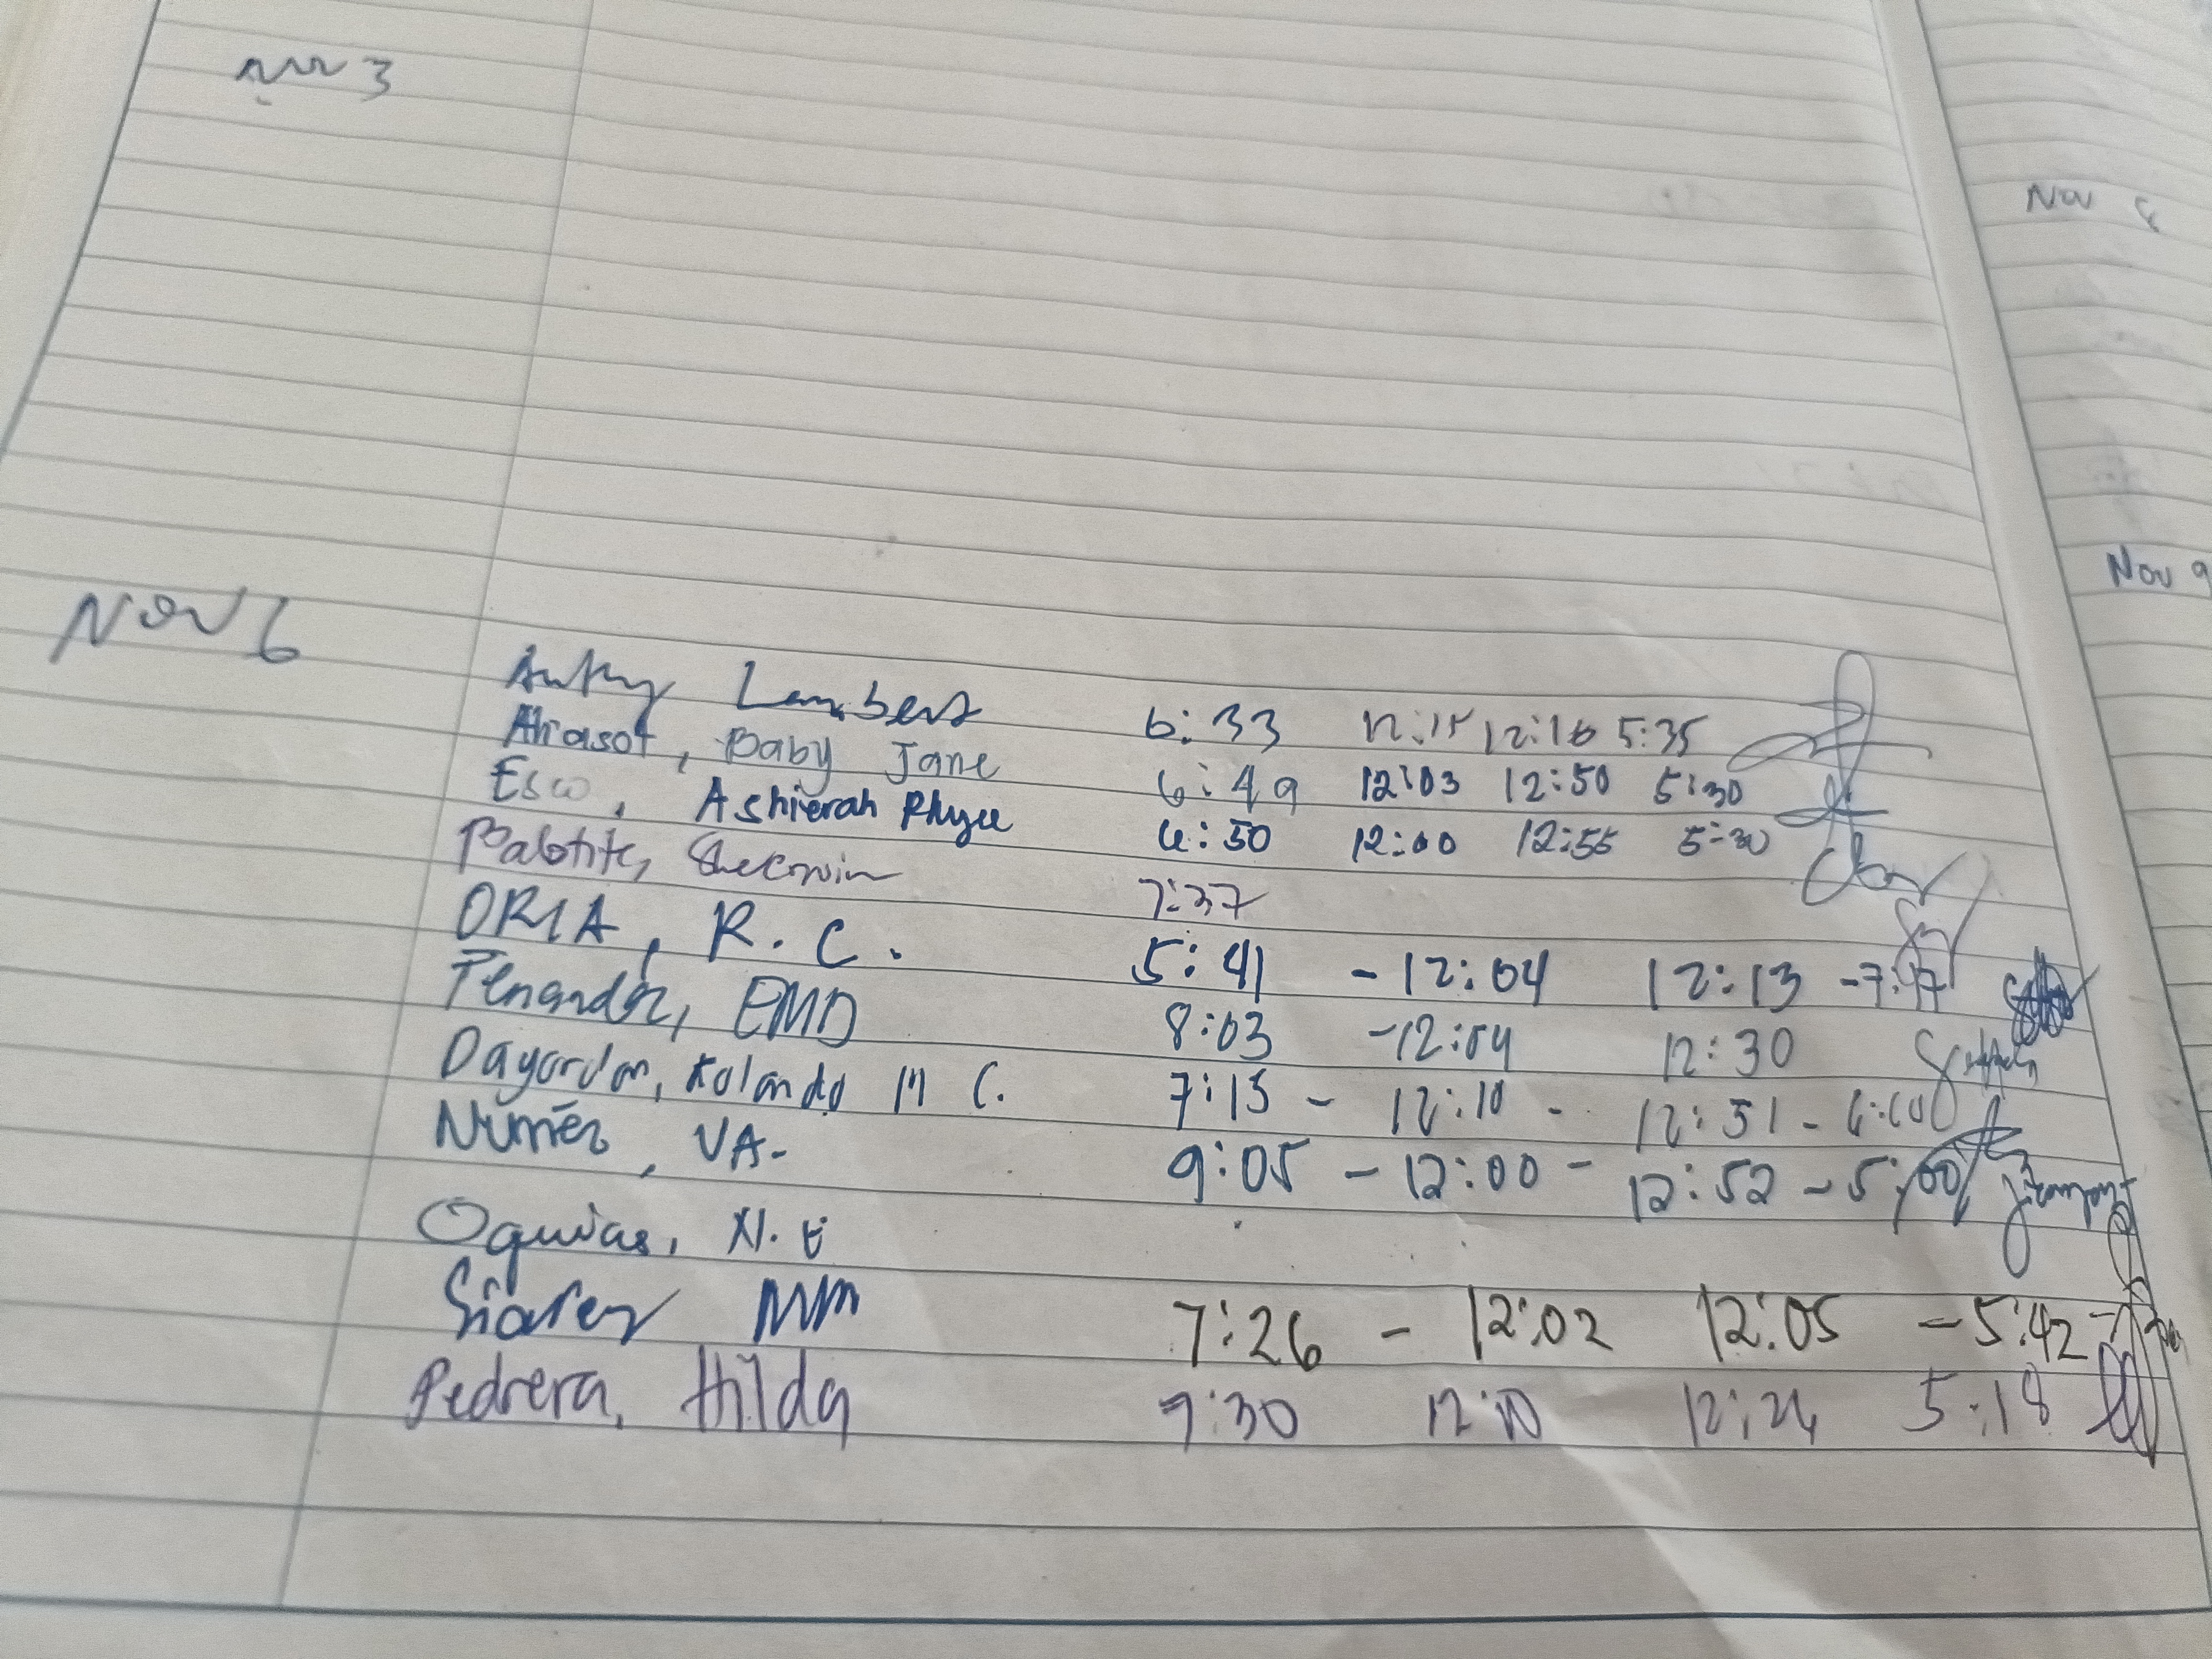 3
NOV 6
Lambert 6:33 12:15 12:16 5:35
Ahasot, Baby Jane 6:49 12:03 12:50 5:30
Esco, Ashierah Rhyze 6:50 12:00 12:55 5:30
Babtite, Sherwin 7:37
ORIA, R.C. 5:41 - 12:04 12:13 - 7:17
EMD 8:03 - 12:04 12:30
Rolando M C. 7:15 - 12:10 - 12:51 -
Nuñez, VA. 9:05 - 12:00 - 12:52 - 5:00
Oquias, N. E
Siarez MM 7:26 - 12:02 12:05 - 5:42
Pedrera, Hilda 9:30 12:10 12:24 5:18
Nov
Nov 9